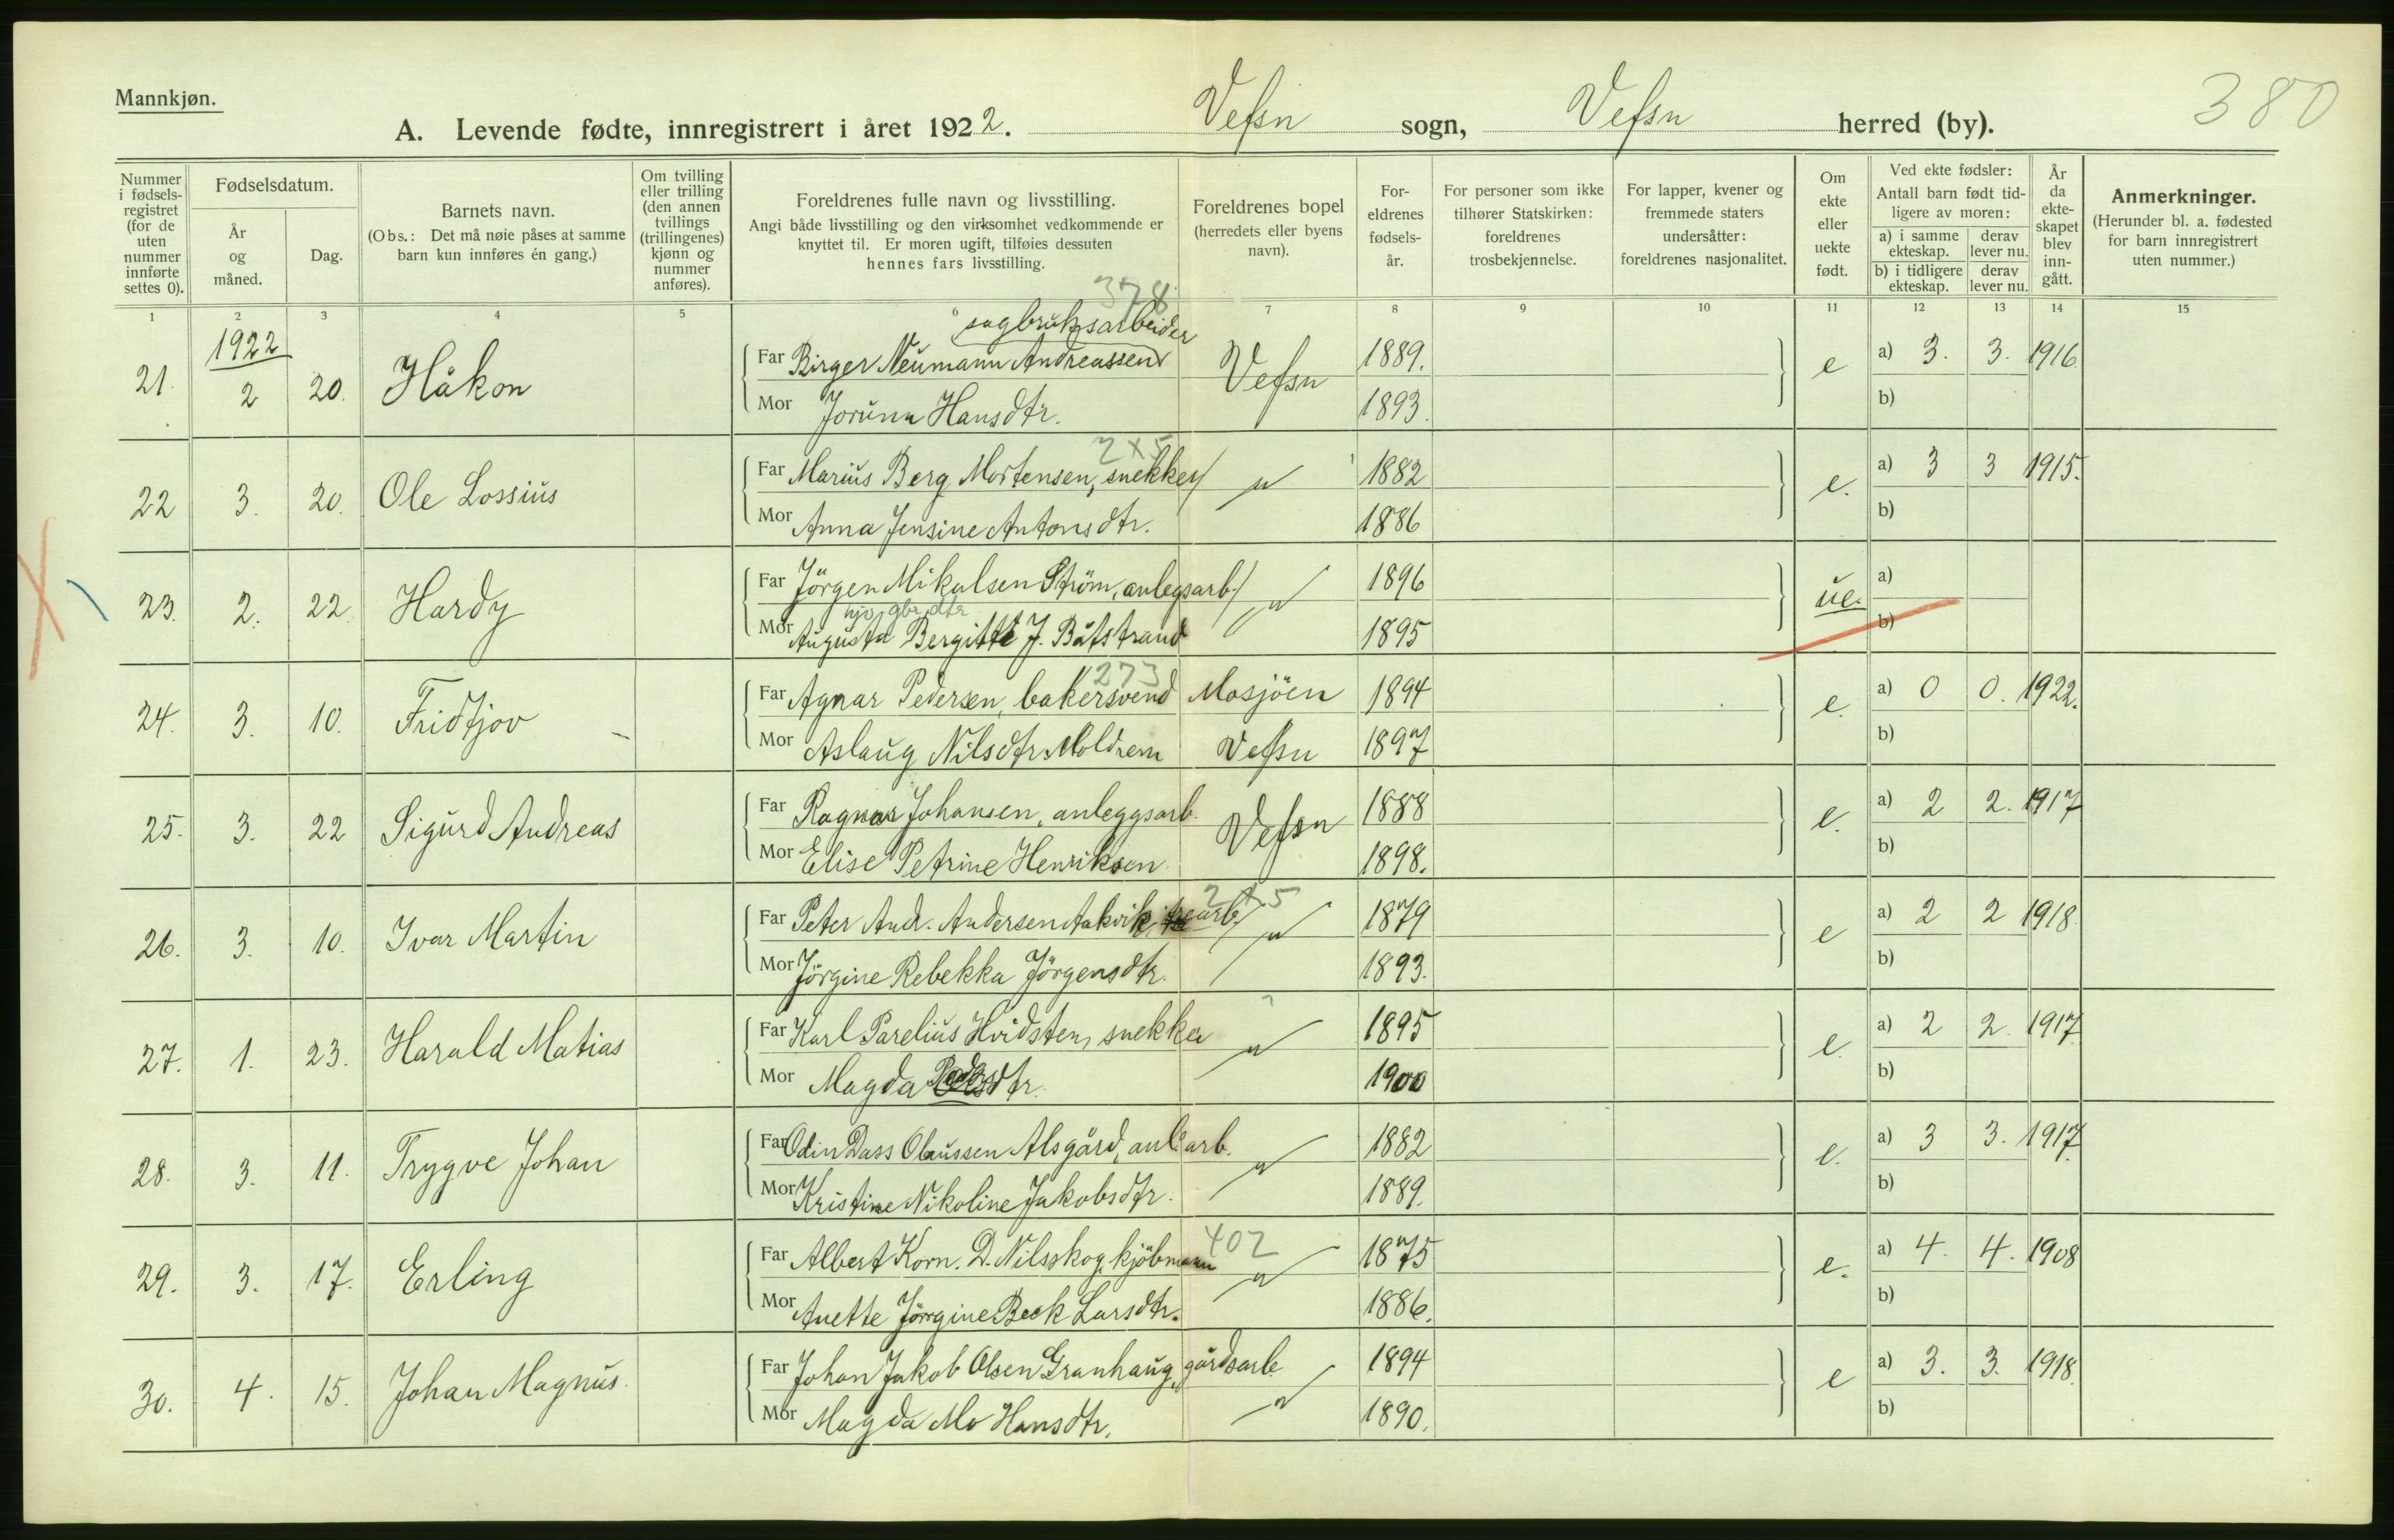 Mannkjøn.
380
A. Levende fødte, innregistrert i året 1922. Vefsn sogn, Vefsn herred (by).
Nummer i fødsels-registret (for de uten nummer innførte settes 0).
Fødselsdatum.
År og måned.
Dag.
Barnets navn.
(Obs.: Det må nøie påses at samme barn kun innføres én gang.)
Om tvilling eller trilling (den annen tvillings (trillingenes) kjønn og nummer anføres).
Foreldrenes fulle navn og livsstilling.
Angi både livsstilling og den virksomhet vedkommende er knyttet til. Er moren ugift, tilføies dessuten hennes fars livsstilling.
Foreldrenes bopel (herredets eller byens navn).
For-eldrenes fødsels-år.
For personer som ikke tilhører Statskirken: foreldrenes trosbekjennelse.
For lapper, kvener og fremmede staters undersåtter: foreldrenes nasjonalitet.
Om ekte eller uekte født.
Ved ekte fødsler: Antall barn født tid-ligere av moren:
a) i samme ekteskap. derav lever nu.
b) i tidligere ekteskap. derav lever nu.
År da ekte-skapet blev inn-gått.
Anmerkninger.
(Herunder bl. a. fødested for barn innregistrert uten nummer.)
1 2 3 4 5 6 7 8 9 10 11 12 13 14 15
1922 378 sagbruksarbeider
21. 2 20. Håkon Far Birger Neumann Andreassen Vefsn 1889. e a) 3. 3. 1916
Mor Jorunn Hansdtr. 1893. b)
2x5
22 3. 20. Ole Lossius Far Marius Berg Mortensen, snekker " 1882 e. a) 3 3 1915.
Mor Anna Jensine Antonsdtr. 1886 b)
23. 2. 22 Hardy Far Jörgen Mikalsen Ström, anlegsarb. " 1896 ue. a)
gbr. dtr
Mor Augusta Bergitte J. Båtstrand 1895 b)
273
24. 3. 10. Fridtjov Far Agnar Pedersen, bakersvend Mosjöen 1894 e. a) 0 0. 1922.
Mor Aslaug Nilsdtr. Moldrem Vefsn 1897 b)
25. 3. 22 Sigurd Andreas Far Ragnar Johansen, anleggsarb. Vefsn 1888 e. a) 2 2. 1917
Mor Elise Petrine Henriksen 1898. b)
2x5
26. 3. 10. Ivar Martin Far Peter Andr. Andersen Aakvik, trearb. " 1879 e a) 2 2 1918
Mor Jörgine Rebekka Jörgensdtr. 1893. b)
27. 1. 23. Harald Matias Far Karl Parelius Hvidsten, snekker " 1895 e. a) 2 2. 1917
Mor Magda Pedersdtr. 1900 b)
28. 3. 11. Trygve Johan Far Odin Dass Olaussen Alsgård, anl. arb. " 1882 e. a) 3 3. 1917
Mor Kristine Nikoline Jakobsdtr. 1889. b)
402
29. 3. 17. Erling Far Albert Korn. D. Nilsskog, kjöbmann " 1875 e. a) 4. 4. 1908
Mor Anette Jörgine Beck Larsdtr. 1886. b)
30. 4. 15. Johan Magnus. Far Johan Jakob Olsen Granhaug, gårdsarb. " 1894 e a) 3. 3. 1918
Mor Magda Mo Hansdtr. 1890. b)